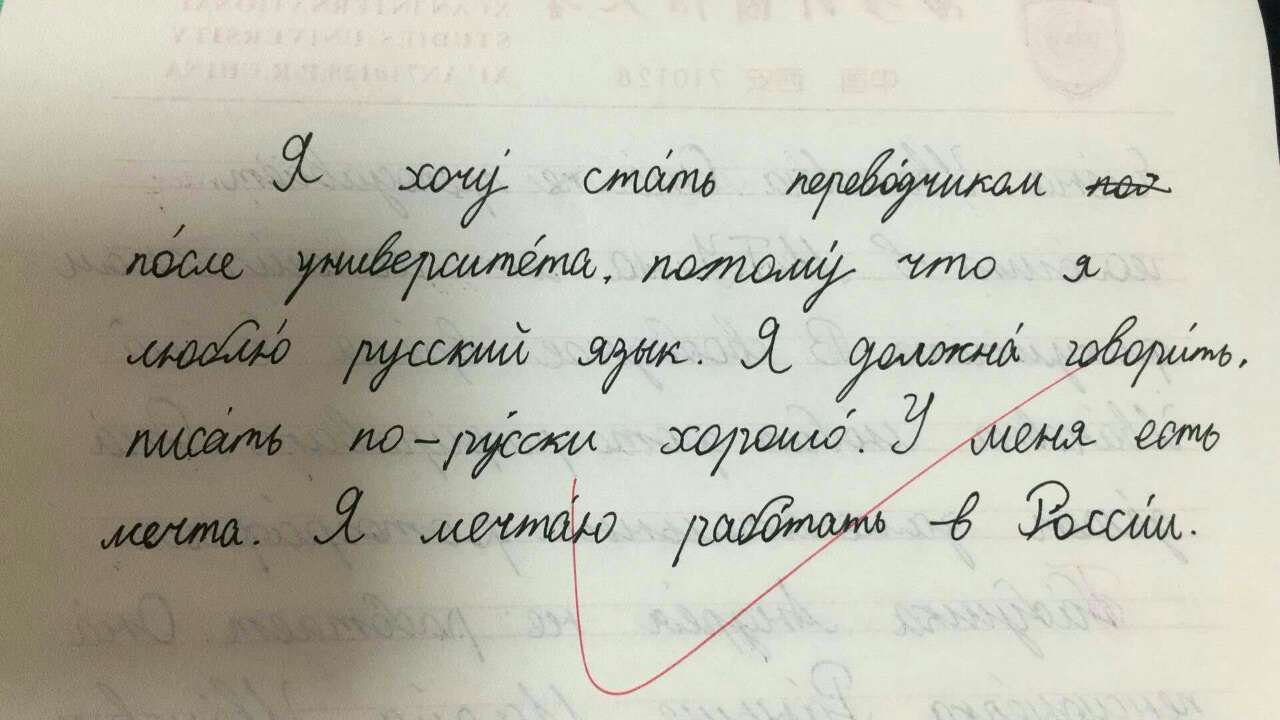 Я хочу́ ста́ть перево́дчиком
по́сле университе́та, потому́ что я
люблю́ русский язык. Я должна́ говори́ть,
писа́ть по-ру́сски хорошо́. У меня есть
мечта. Я мечта́ю рабо́тать в Росси́и.